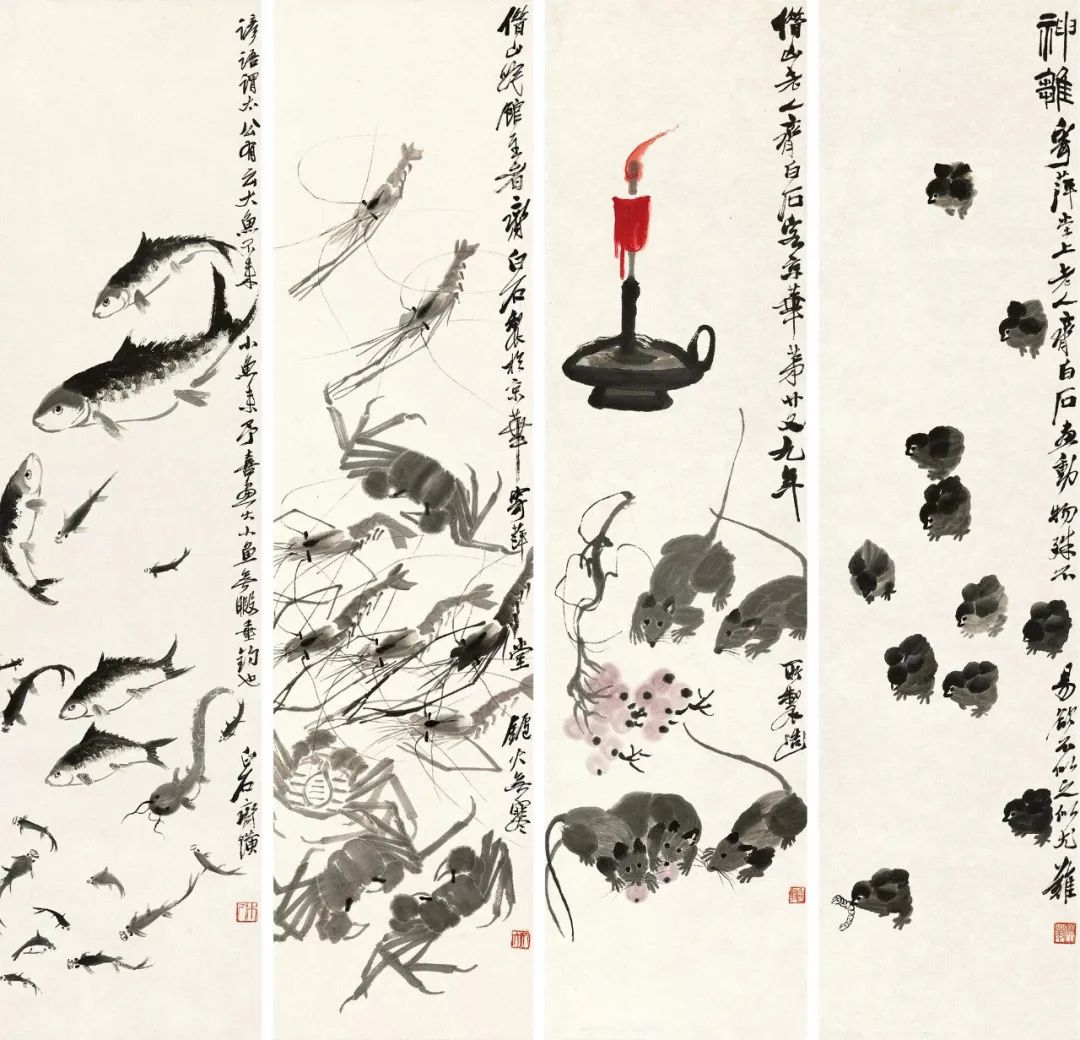 神雛寄萍堂上老人齊白石畫動物殊不易欲不似之似尤難
借山老人齊白石客京華第廿又九年
借山吟館主者齊白石製於京華寄萍堂鑪火無寒
諺語謂太公有云大魚不來小魚來予喜畫大小魚無暇垂釣也白石齊璜